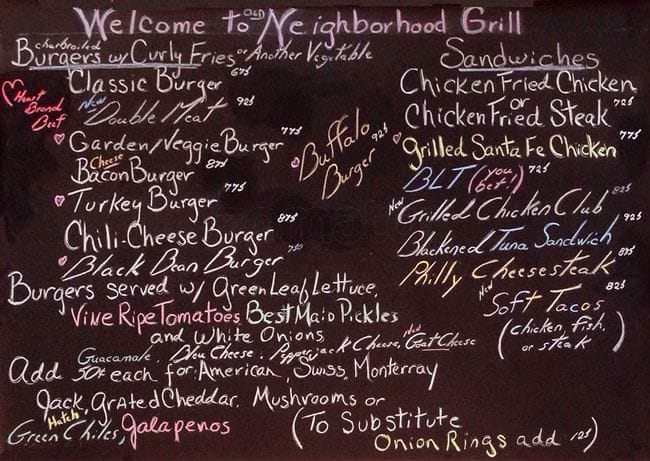 Welcome to OLD Neighborhood Grill
charbroiled
Burgers w/ Curly Fries or Another Vegetable
Classic Burger 675
Heart Brand Beef
New Double Meat 925
Garden/Veggie Burger 775
Bacon Cheese Burger 875
Turkey Burger 775
Chili-Cheese Burger 875
Black Bean Burger 750
Buffalo Burger 925
Sandwiches
Chicken Fried Chicken
or
Chicken Fried Steak 725
Grilled Santa Fe Chicken 775
BLT (you bet!) 725
New Grilled Chicken Club 825
Blackened Tuna Sandwich 925
Philly Cheesesteak 875
New Soft Tacos 825
(chicken, fish, or steak)
Burgers served w/ Green Leaf Lettuce,
Vine Ripe Tomatoes, Best Maid Pickles
and White Onions
Guacamole, Bleu Cheese, Pepperjack Cheese, New Goat Cheese
Add 50¢ each for: American, Swiss, Monterray
Jack, Grated Cheddar, Mushrooms or
Hatch
Green Chiles, Jalapenos
(To Substitute
Onion Rings add 125)